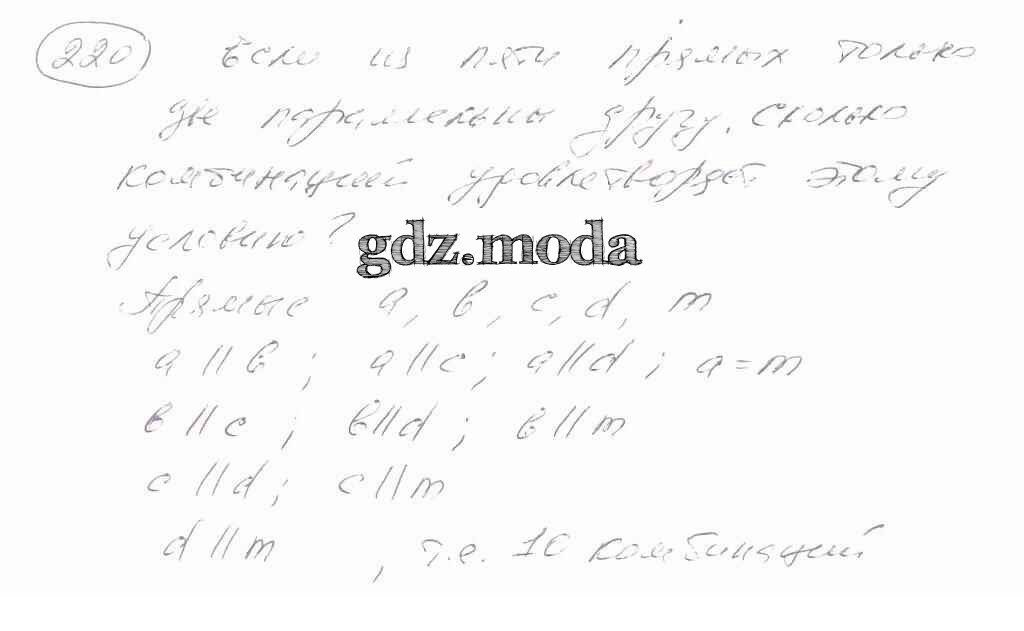 220 Если из пяти прямых только
две параллельны другу. Сколько
комбинаций удовлетворяет этому
условию?
gdz.moda
Прямые a, b, c, d, m
a || b ; a || c ; a || d ; a = m
b || c ; b || d ; b || m
c || d ; c || m
d || m , т.е. 10 комбинаций